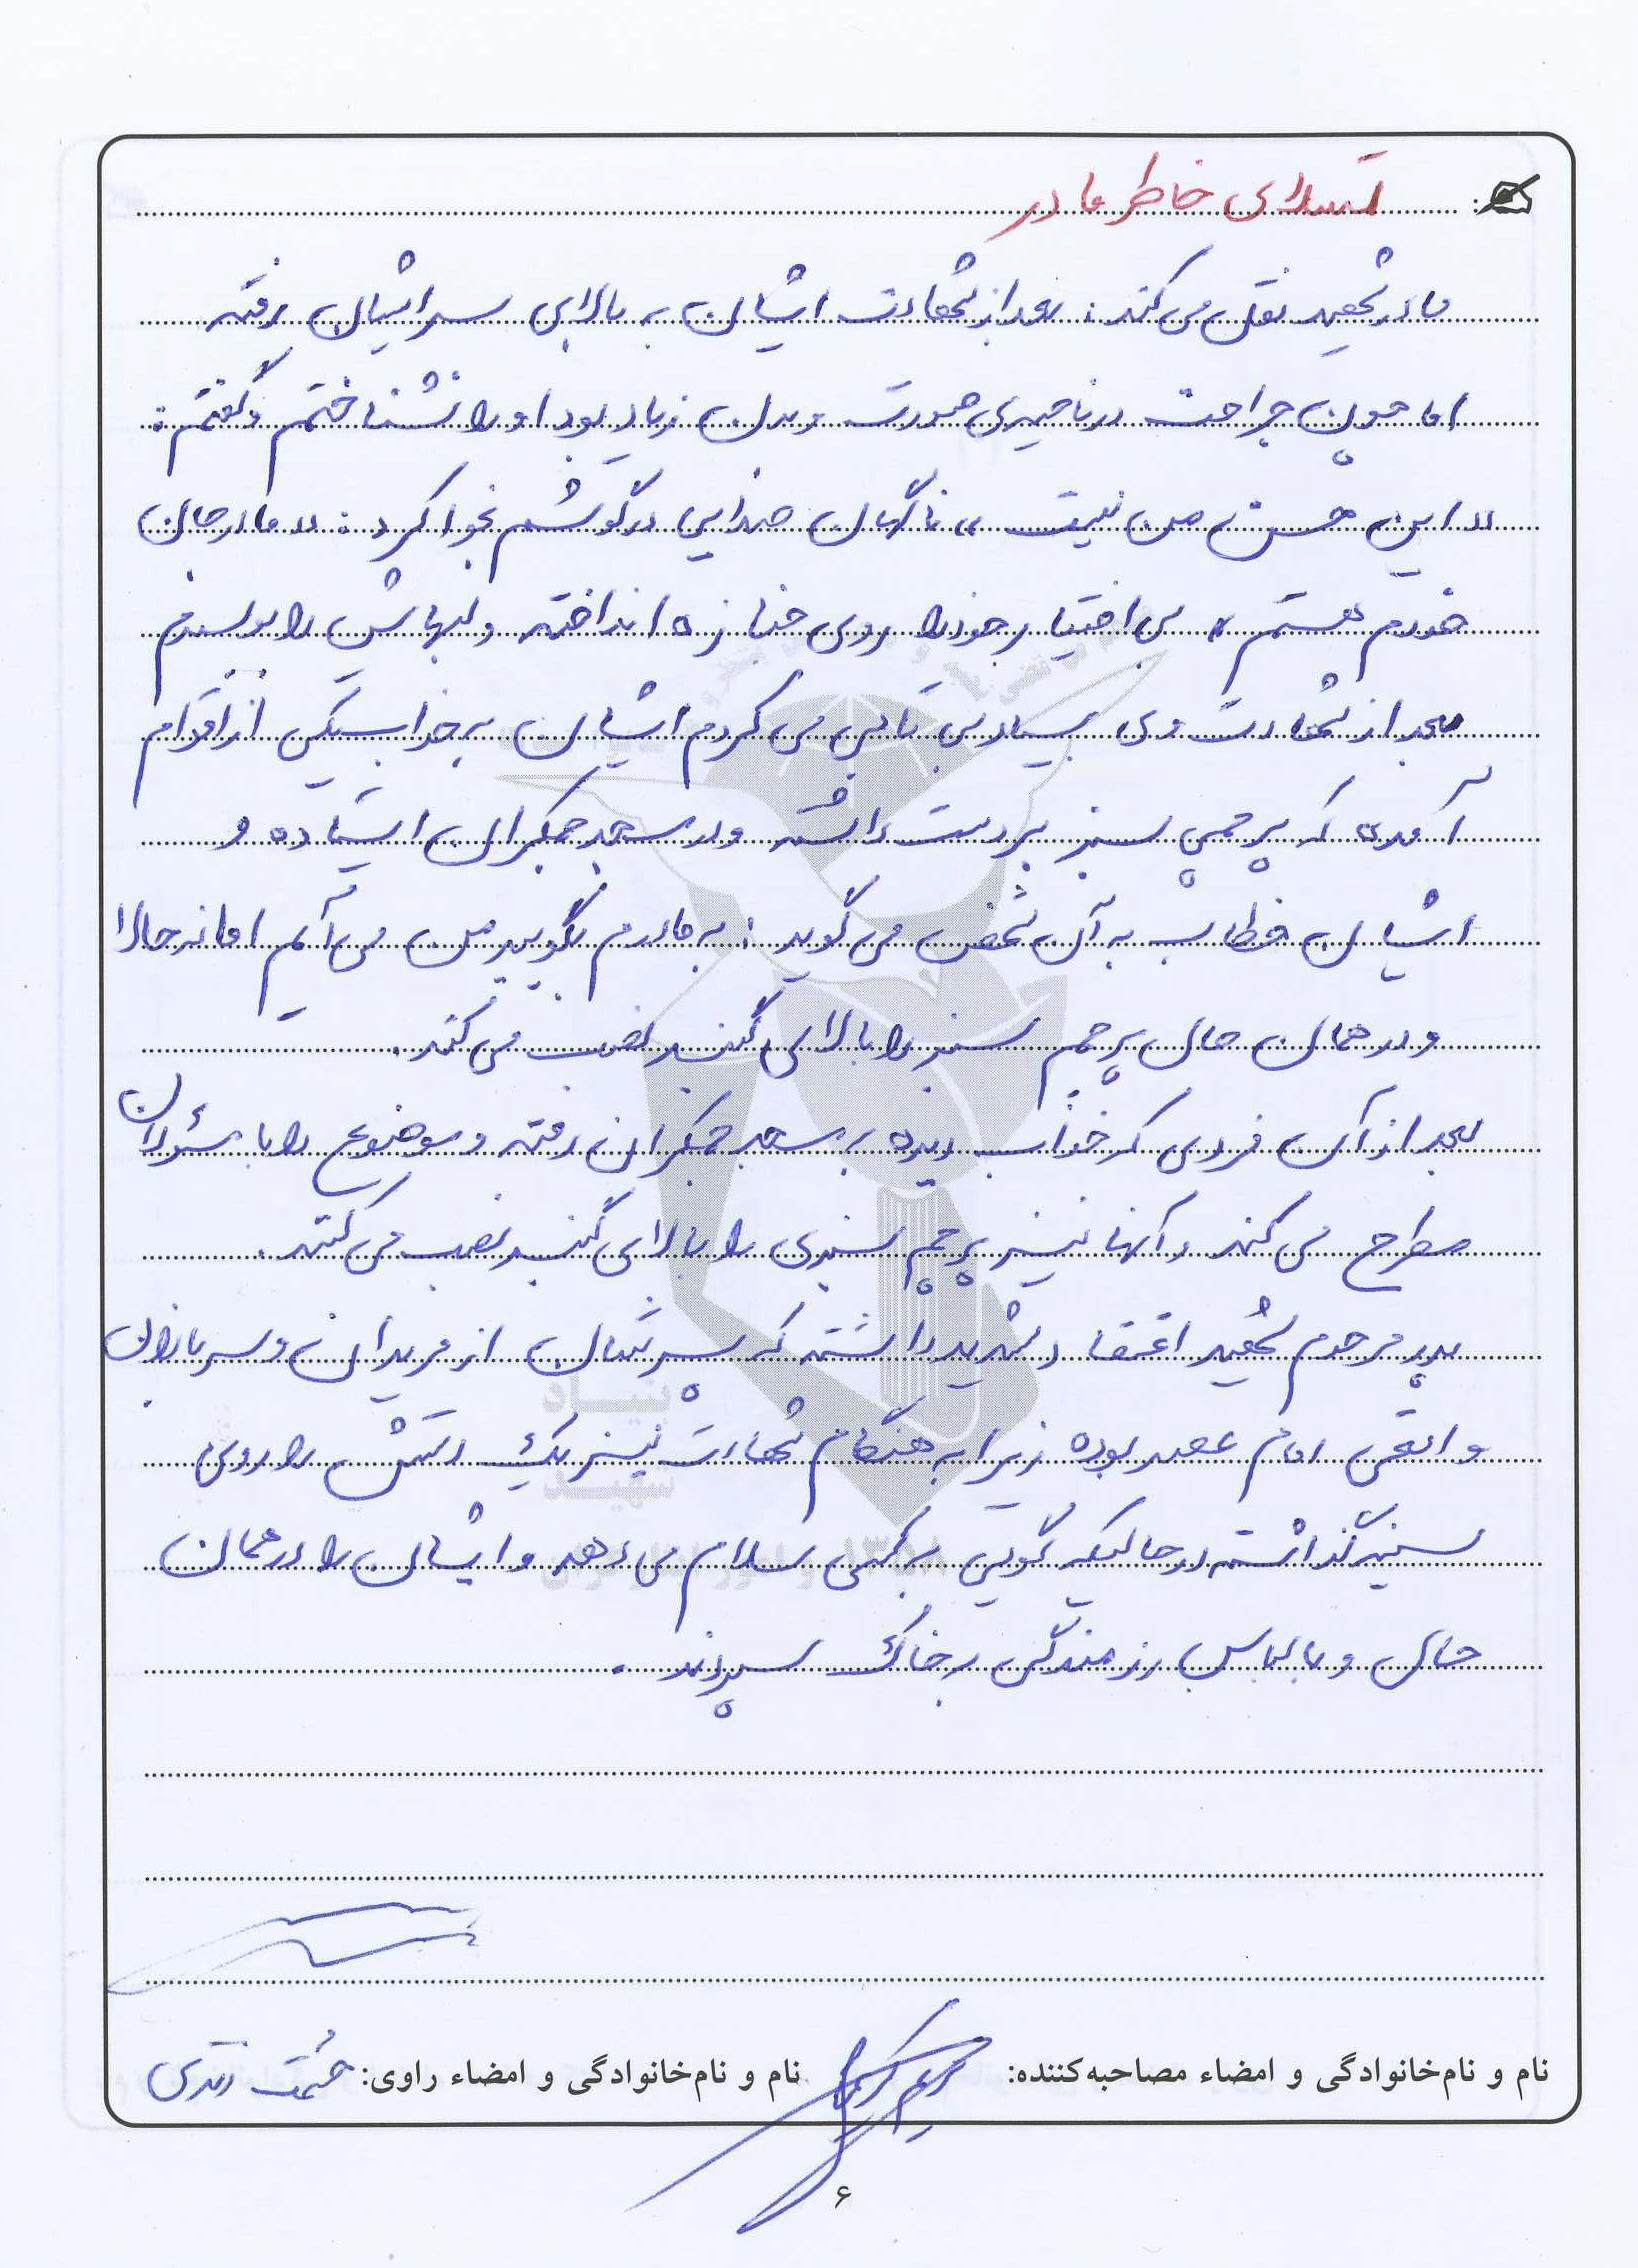 تسلای خاطر مادر
مادر شهید نقل می کند: بعد از شهادت ایشان به بالای سر ایشان رفته
اما چون جراحت در ناحیه ی صورت و بدن زیاد بود او را نشناختم و گفتم:
«این حسن من نیست» ناگهان صدایی در گوشم نجوا کرد: «مادر جان
خودم هستم» بی اختیار خود را روی جنازه انداخته و لبهایش را بوسیدم
بعد از شهادت وی بسیار بی تابی می کردم ایشان به خواب یکی از اقوام
آمده که پرچمی سبز بر دست داشته و در مسجد جمکران ایستاده و
ایشان خطاب به آن شخص می گوید: به مادرم بگویید من می آیم اما نه حالا
و در همان حال پرچم سبز را بالای گنبد نصب می کند.
بعد از آن فردی که خواب دیده به مسجد جمکران رفته و موضوع را با مسئولان
مطرح می کند و آنها نیز پرچم سبزی را بالای گنبد نصب می کنند.
پدر مرحوم شهید اعتقاد شدید داشته که پسرشان از مریدان و سربازان
واقعی امام عصر بوده زیرا به هنگام شهادت نیز یک دستش را روی
سینه گذاشته در حالیکه گویی به کسی سلام می دهد و ایشان را در همان
حال و با لباس رزمندگی به خاک سپردند.
بنیاد
شهید
نام و نام‌خانوادگی و امضاء مصاحبه‌کننده: نام و نام‌خانوادگی و امضاء راوی: حشمت
۶